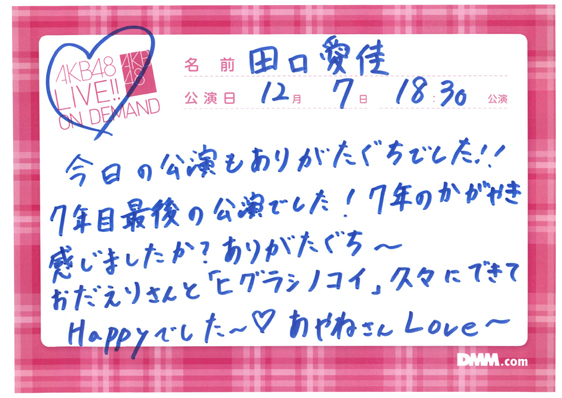 AKB48
LIVE!!
ON DEMAND
AKB
48
名 前 田口愛佳
公演日 12月 7日 18:30 公演
今日の公演もありがたぐちでした!!
7年目最後の公演でした！7年のかがやき
感じましたか？ありがたぐち〜
おだえりさんと「ヒグラシノコイ」久々にできて
Happyでした〜♡ あやねさん Love〜
DMM.com